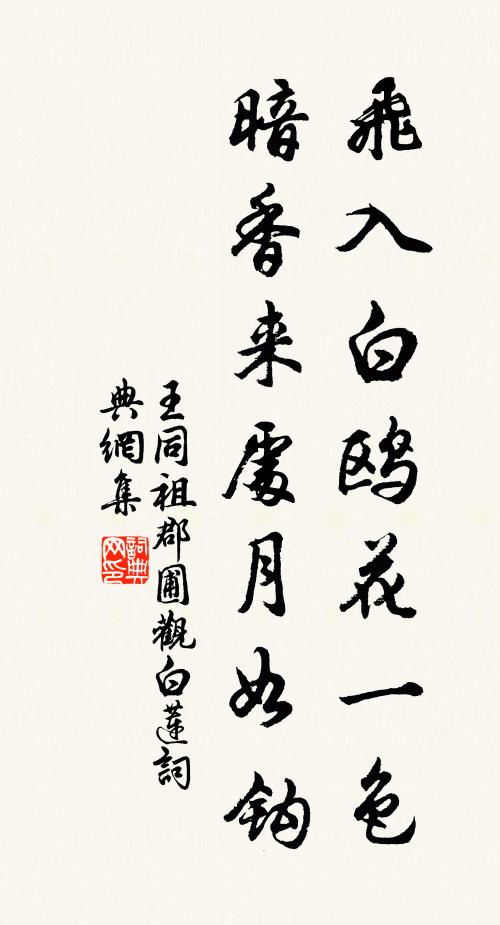 飛入白鷗花一色
暗香来處月如鈎
王同祖郡圃觀白蓮詞
典網集
詞典网印